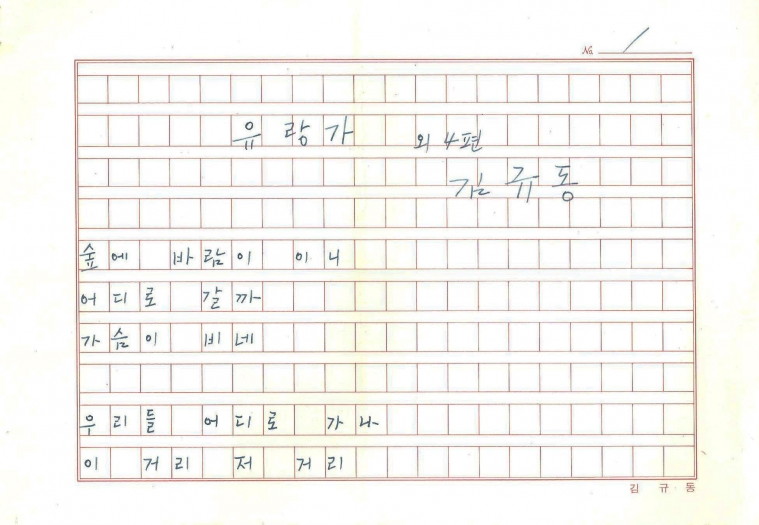 № 1
유랑가 외 4편
김규동
숲에 바람이 이니
어디로 갈까
가슴이 비네
우리들 어디로 가나
이 거리 저 거리
김 규 동